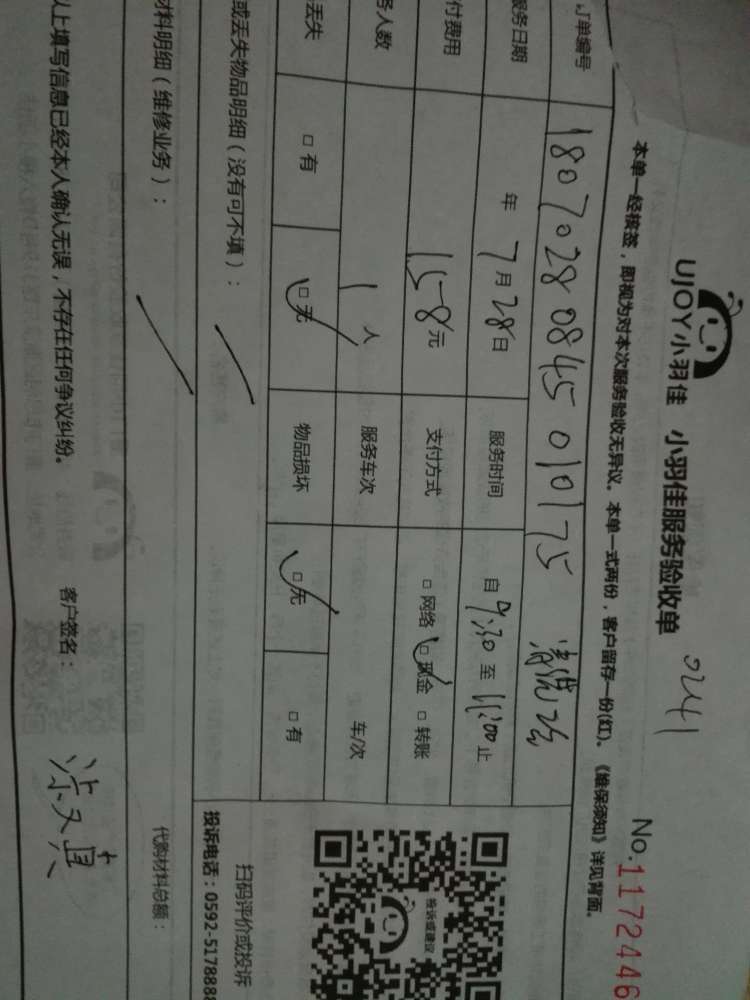 UJOY小羽佳 小羽佳服务验收单 0241 No.1172446
本单一经接签，即视为对本次服务验收无异议。本单一式两份，客户留存一份(红)。《维保须知》详见背面。
订单编号 18070280845010175
服务日期 年 7月28日 服务时间 自9:30至11:00止
付费用 158元 支付方式 □网络 □现金 □转账
务人数 1人 服务车次 车/次
丢失 □有 □无 物品损坏 □无 □有
或丢失物品明细（没有可不填）：
材料明细（维修业务）：
代购材料总额：
以上填写信息已经本人确认无误，不存在任何争议纠纷。 客户签名：
投诉或建议
扫码评价或投诉
投诉电话：0592-5178888